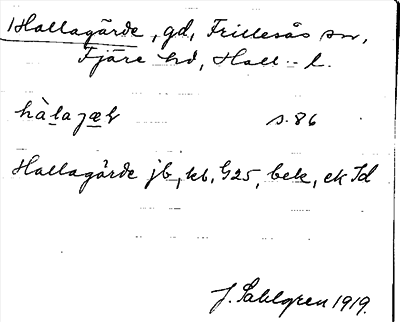 Hallagärde, gd, Frillesås sn,
Fjäre hd, Hall. l.
s. 86
Hallagärde jb, kb, G25, bek, ek Id
J. Sahlgren 1919.